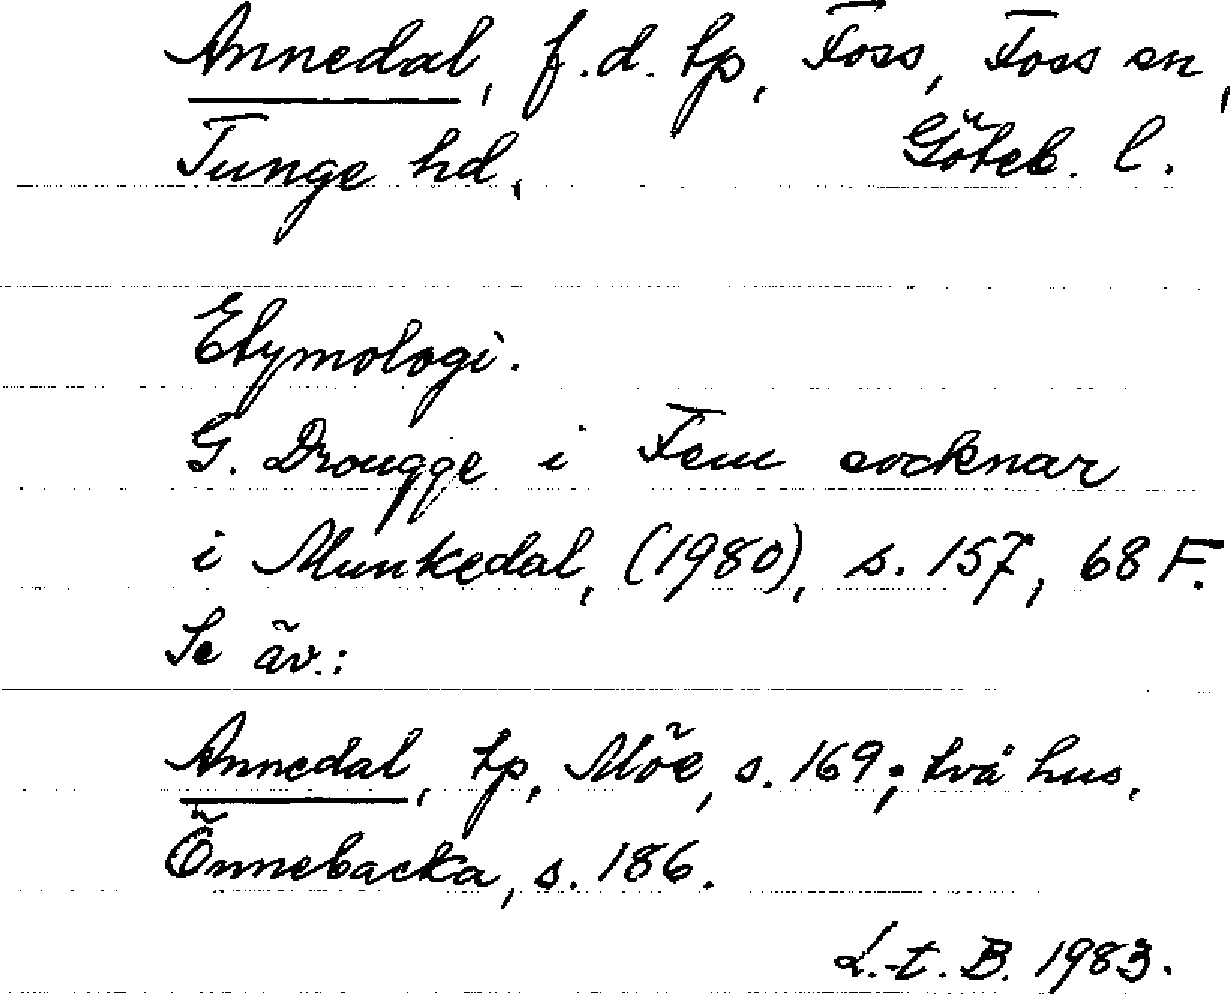 Annedal, f.d. tp, Foss, Foss sn,
Tunge hd, Göteb. l.
Etymologi.
G. Drougge i Fem socknar
i Munkedal, (1980), s. 157, 68 F.
Se äv.:
Annedal, tp, Möe, s. 169; två hus,
Önnebacka, s. 186.
L.-t. B. 1983.